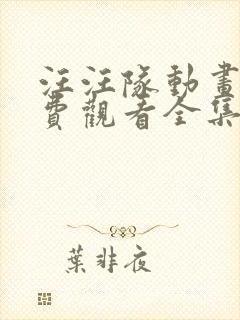 汪汪隊動畫
費觀看全集
葉非夜